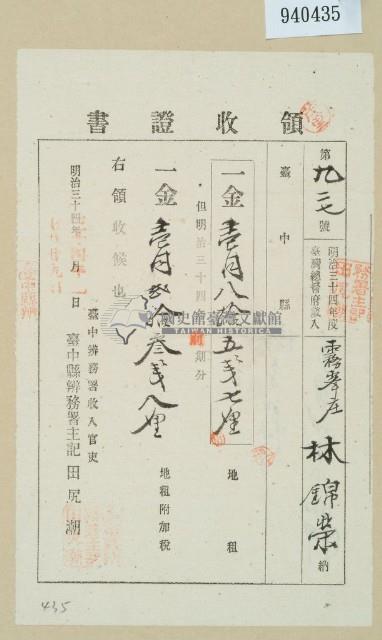 940435
領收證書
第九二七號
明治三十四年度
臺灣總督府歲入
霧峯庄
林錦榮 納
臺中縣
一金壹円八拾五戔七厘
地租
但明治三十四年前期分
一金壹円
叁戔八厘
地租附加稅
右領收候也
明治三十四年 月 日
臺中辨務署收入官吏
臺中縣辨務署主記 田尻 潮
國史館臺灣文獻館
435